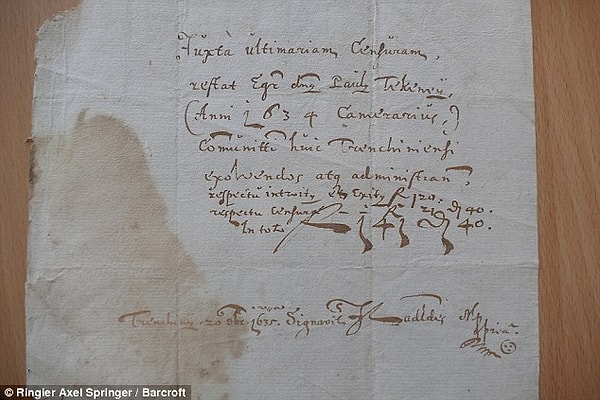 Juxtà ultimariam Censuram,
restat Egr dnus Pauls Tekeney,
(Anni 1634 Camerarius,)
Comunitti huic Trenchiniensi
exolvendos atq administran,
respectu introitq et Exitq f 120.
respectu Censuræ f 21 d 40.
In toto f 141 d 40.
Trenchiny 20 1635. Signavit
© Ringier Axel Springer / Barcroft